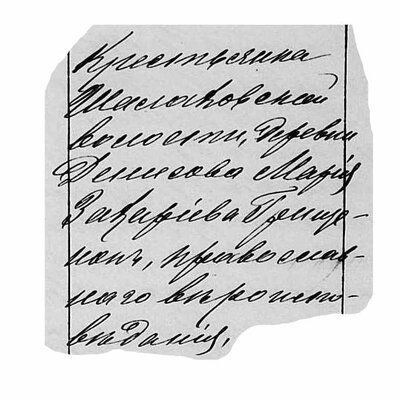 Крестьянка
Шаслаковской
волости, деревни
Денисова Марія
Захаріева Грице-
нокъ, православ-
наго вѣроиспо-
вѣданія,